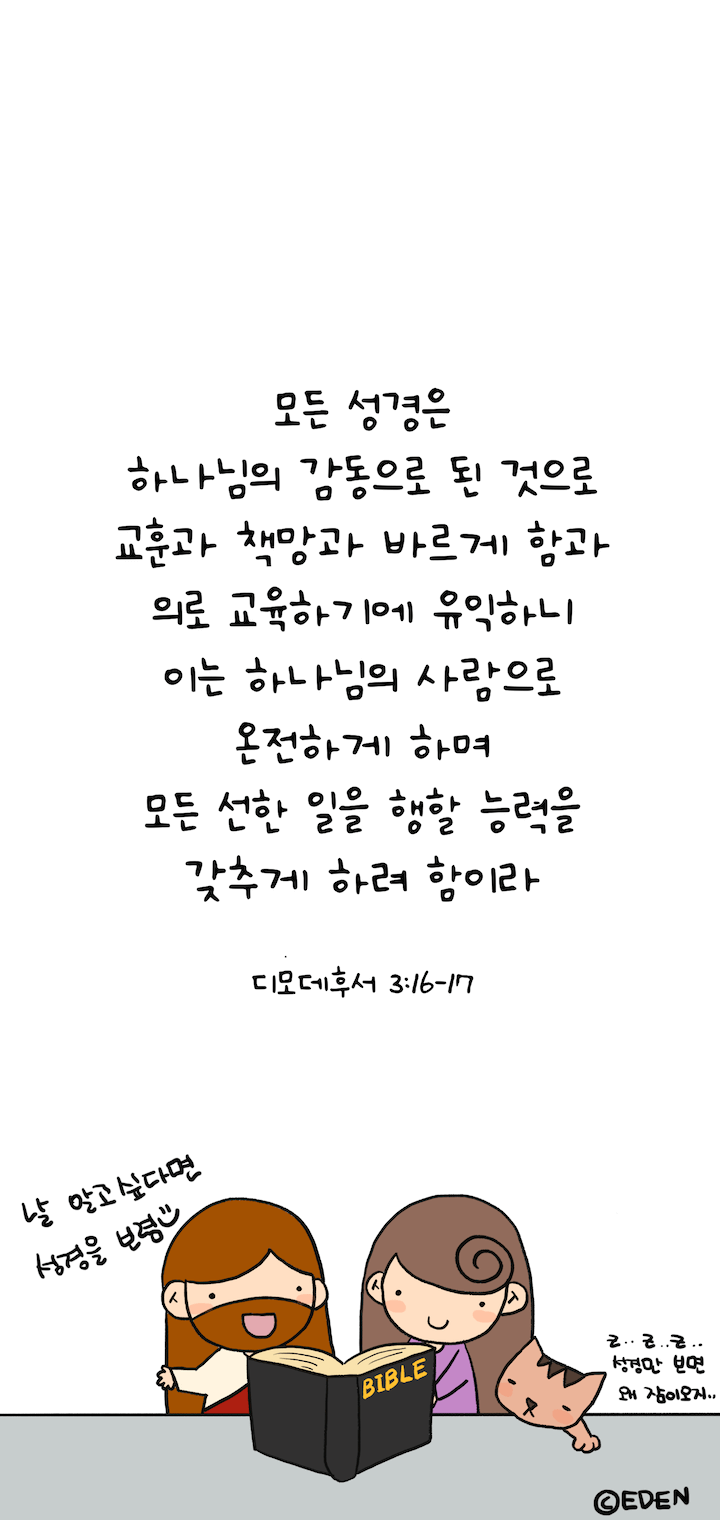 모든 성경은
하나님의 감동으로 된 것으로
교훈과 책망과 바르게 함과
의로 교육하기에 유익하니
이는 하나님의 사람으로
온전하게 하며
모든 선한 일을 행할 능력을
갖추게 하려 함이라
디모데후서 3:16-17
날 알고싶다면
성경을 보렴
BIBLE
ㄹ.. ㄹ..ㄹ..
성경만 보면
왜 잠이오지..
©EDEN